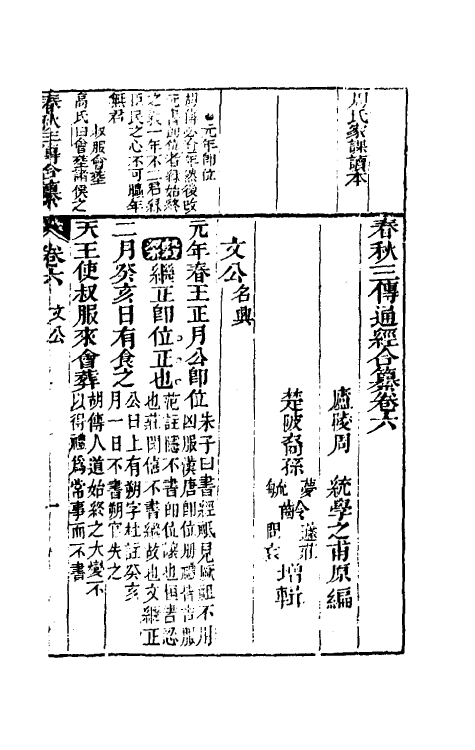 周氏家課讀本
春秋三傳通經合纂卷六
廬陵周　統學之甫原編
楚陂裔孫
夢齡　蓬莊
毓齡　問袁
增輯
文公名興
元年春王正月公即位
朱子曰書經秪見厥祖不用
凶服漢唐即位
穀梁繼正即位正也
范註隱不書即位讓也桓書惡
也莊閔僖不書繼故也文繼正
二月癸亥日有食之
公日上有朔字杜註癸亥
月一日不書朔官失之
天王使叔服來會葬
胡傳人道始終之大變不
以得禮為常事而不書
元年即位
胡傳必逾年然後改
元書即位者緣始終
之義一年不二君緣
臣民之心不可曠年
無君
叔服會葬
高氏曰會葬諸侯之
春秋三傳合纂
卷六
文公
一